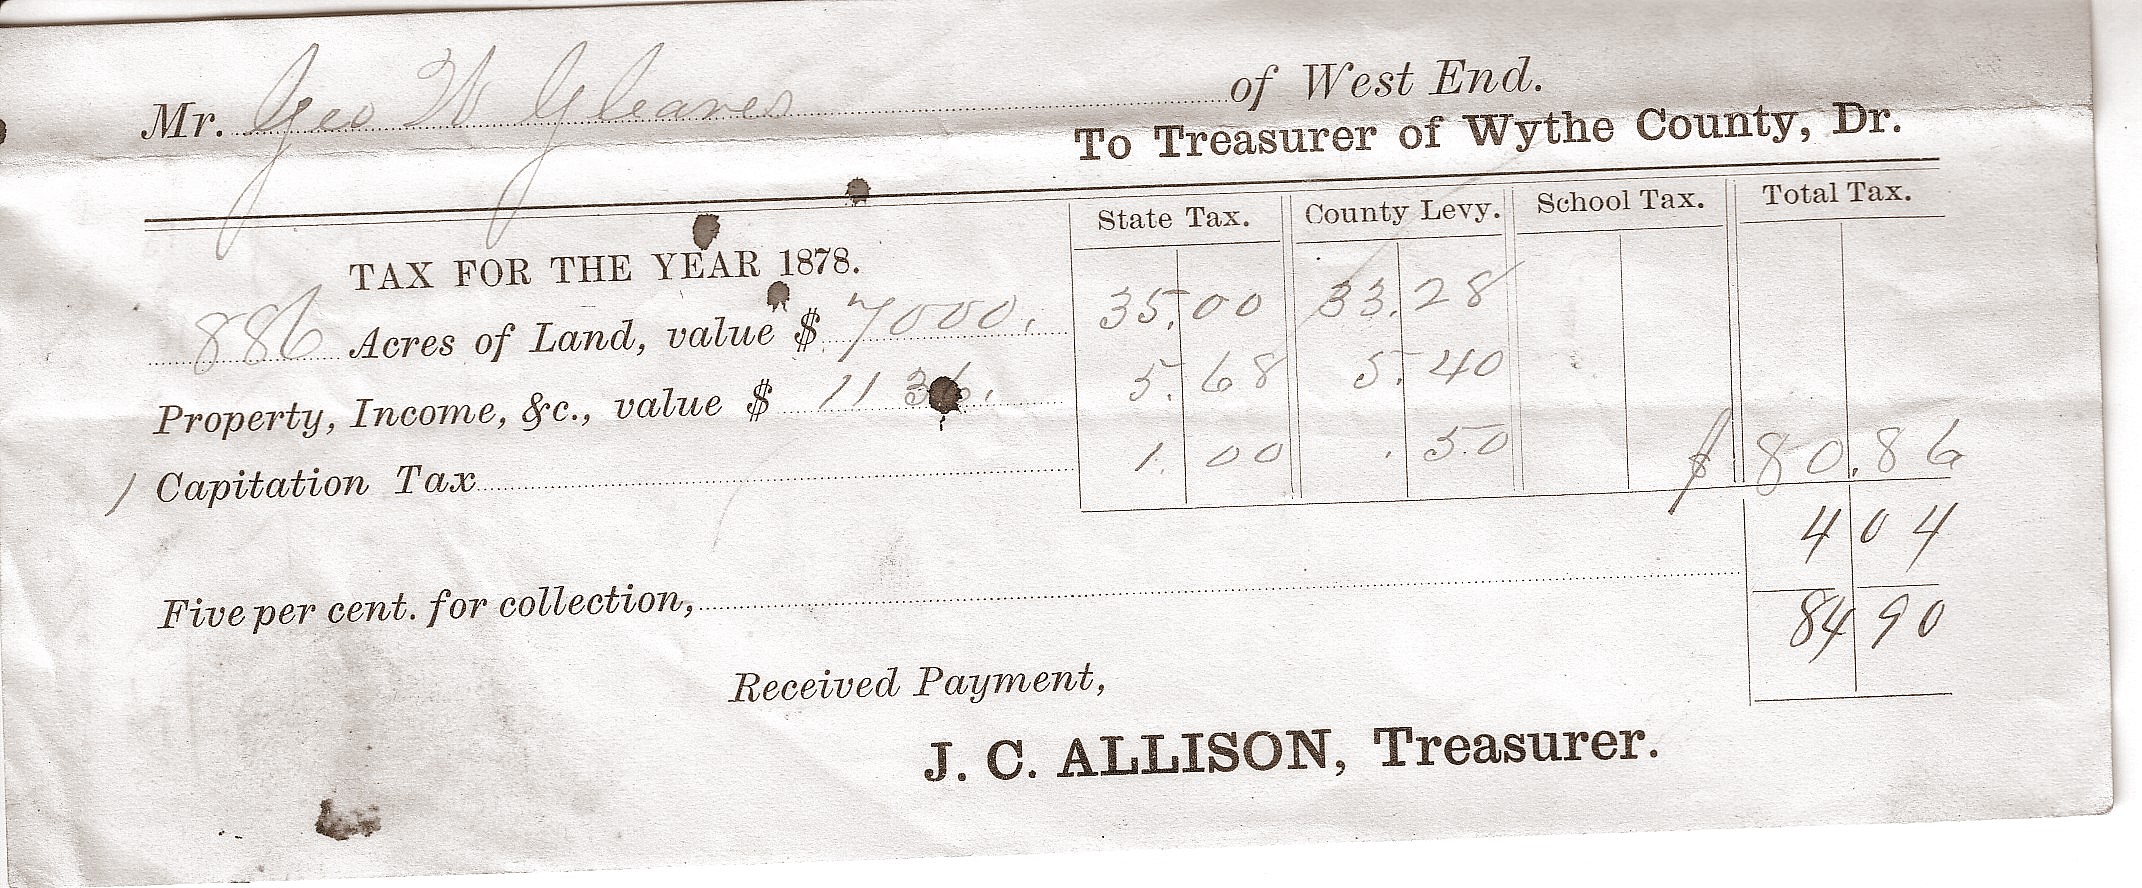 Mr. Geo W Gleaves of West End.
To Treasurer of Wythe County, Dr.
State Tax. County Levy. School Tax. Total Tax.
TAX FOR THE YEAR 1878.
886 Acres of Land, value $ 7000. 35.00 33.28
Property, Income, &c., value $ 1136. 5.68 5.40
1 Capitation Tax 1.00 .50 $ 80.86
4 04
Five per cent. for collection, 84 90
Received Payment,
J. C. ALLISON, Treasurer.